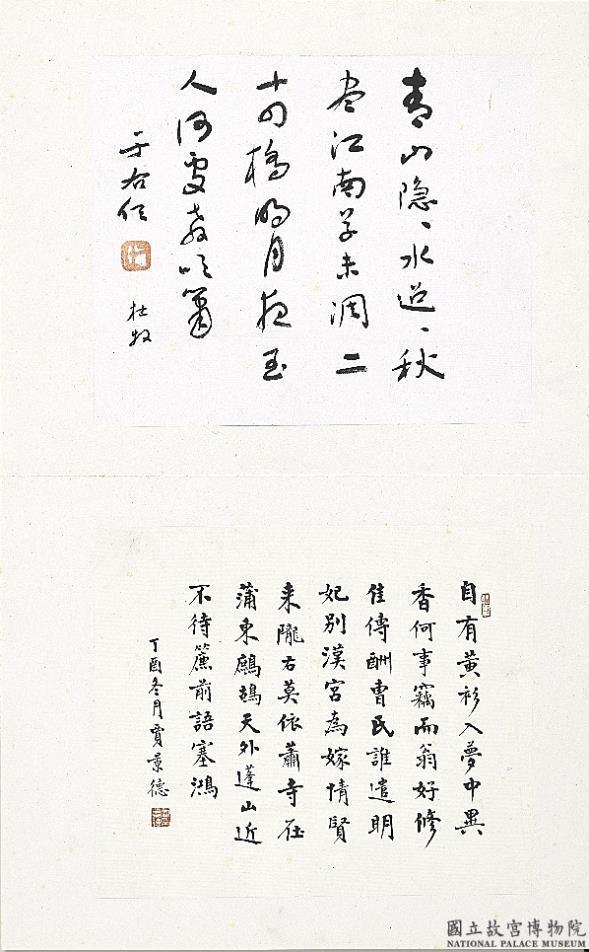 青山隐、水迢、秋
尽江南草未凋二
十四橋明月夜玉
人何處教吹簫
于右任
杜牧
自有黃衫入夢中異
香何事竊而翁好修
佳傳酬曹民誰遣明
妃別漢宮為嫁情賢
来隴右莫依蕭寺在
蒲東鷓鴣天外蓬山近
不待簾前語塞鴻
丁酉冬月賈景德
國立故宮博物院
NATIONAL PALACE MUSEUM